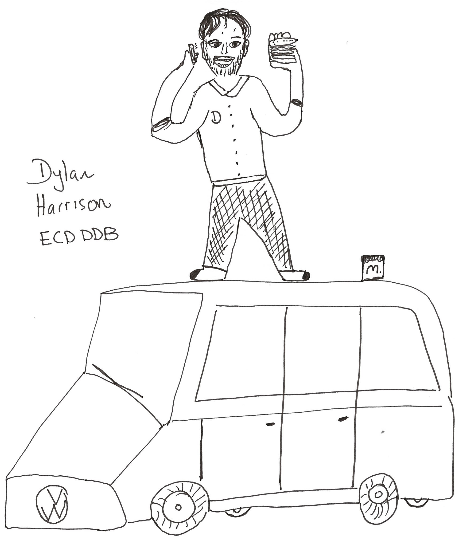 D
M.
Dylan
Harrison
ECD DDB
VW